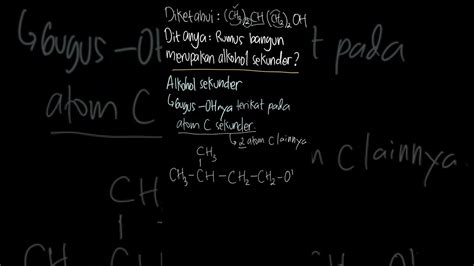 Diketahui : (CH₃)₂CH (CH₂)₂OH
Ditanya: Rumus bangun
merupakan alkohol sekunder?
Alkohol sekunder
↳ gugus -OHnya terikat pada
atom C sekunder.
↳ 2 atom C lainnya
CH₃
CH₃-CH-CH₂-CH₂-O
↳ gugus -O
t pada
atom C
C lainnya.
CH